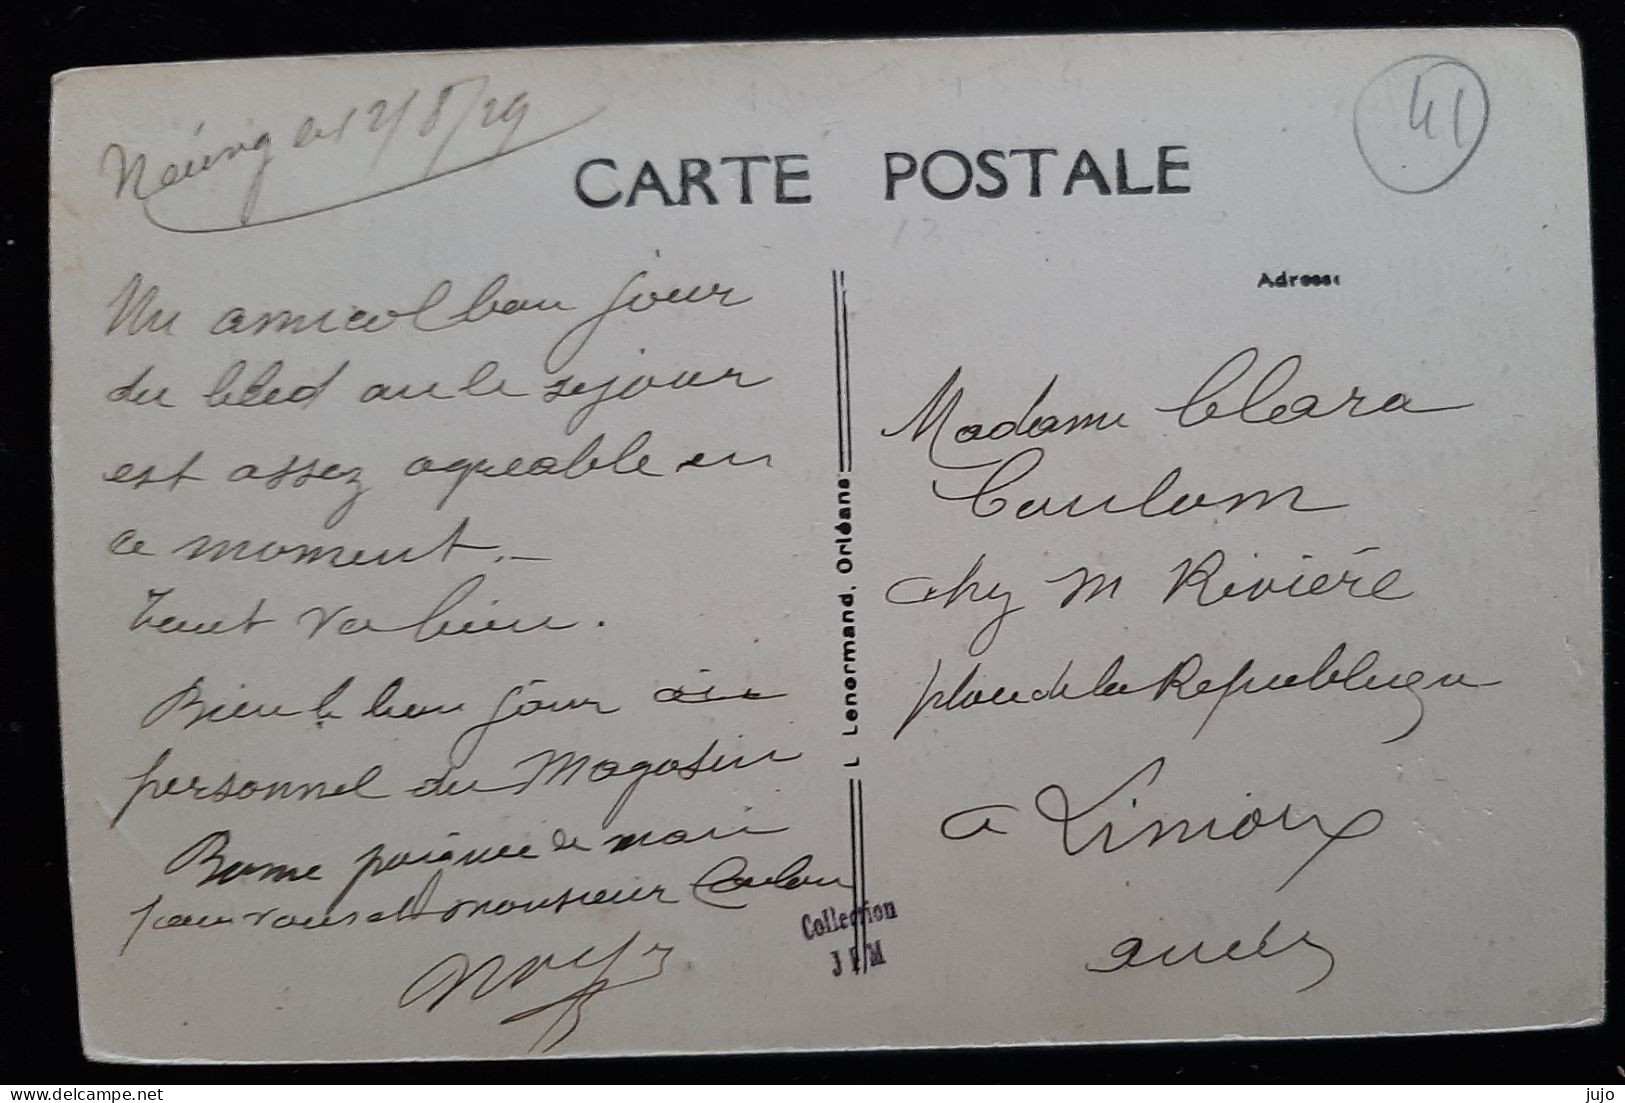 12/8/29
CARTE POSTALE
41
Adresse:
Un amical bon jour
du bled où le séjour
est assez agreable en
ce moment. —
Tout va bien.
Bien le bon jour au
personnel du Magasin
Bonne poignée de main
pour vous et monsieur Coulon
Madame Clara
Coulom
chez M Rivière
place de la Republique
a Limoux
aude
L Lenormand, Orléans
Collection
J P M
jujo